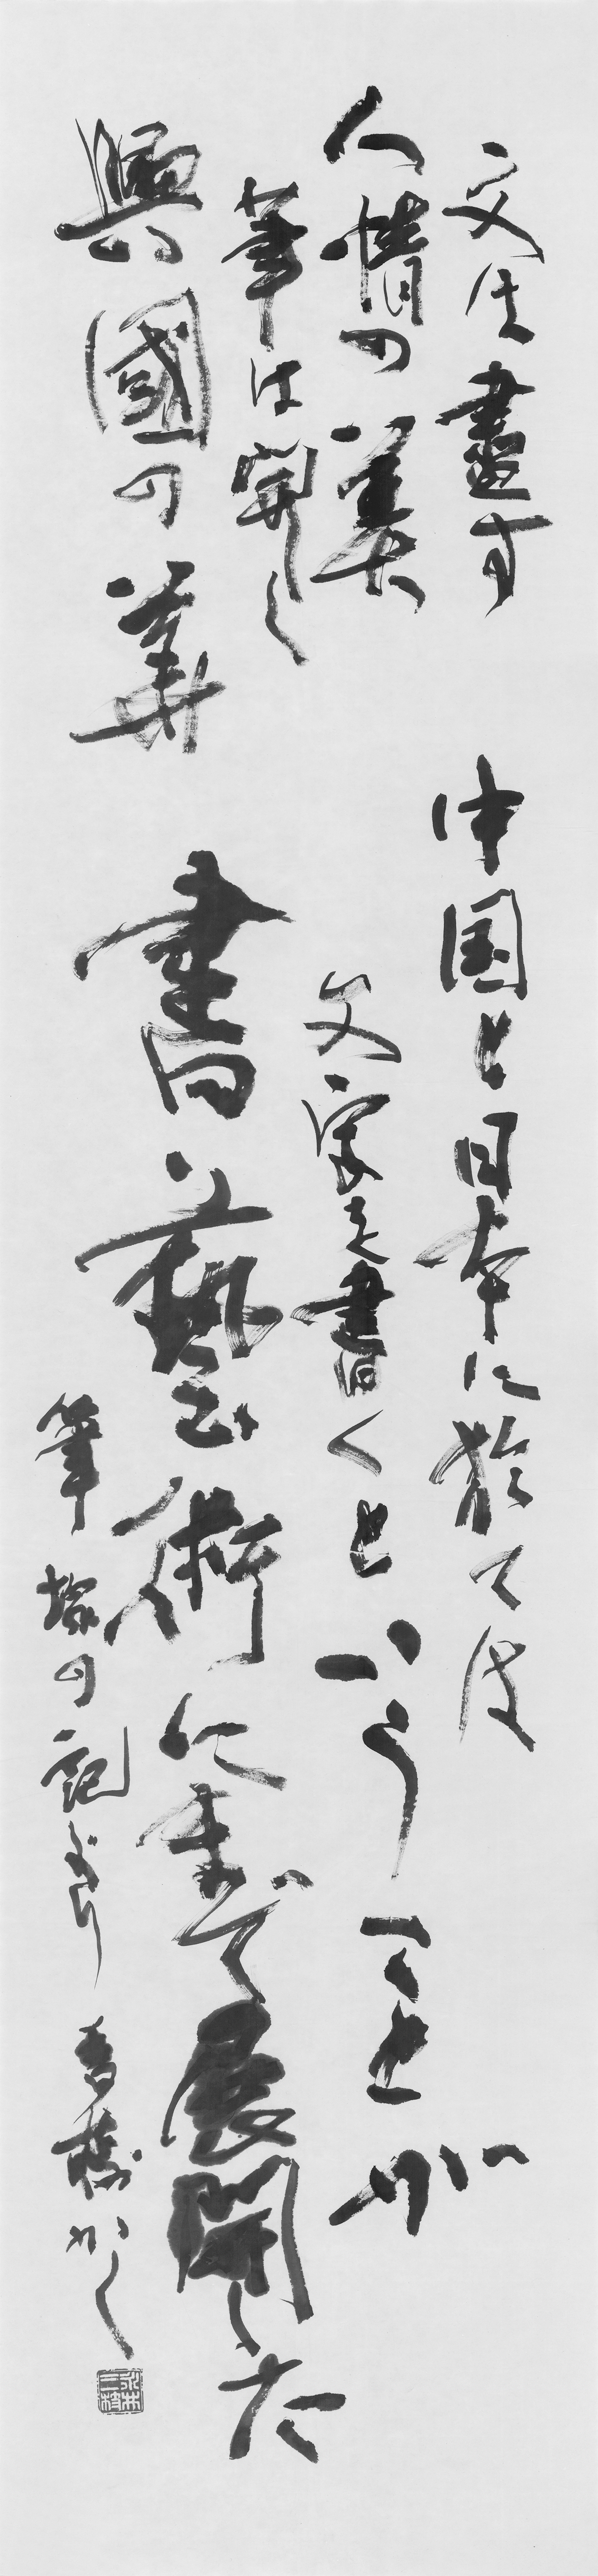 文は盡す
人情の美
筆は開く
興國の華
中国と日本に於ては
文字を書くと
いうことが
書藝術にまで
展開した
筆塚の記より
香蘭かく